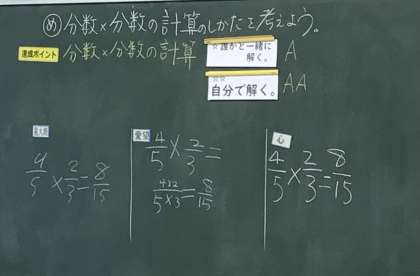 め 分数×分数の計算のしかたを考えよう。
達成ポイント 分数×分数の計算
☆誰かと一緒に解く。 A
☆☆自分で解く。 AA
4/5×2/3=8/15
愛望
4/5×2/3=
4×2/5×3=8/15
心
4/5×2/3=8/15